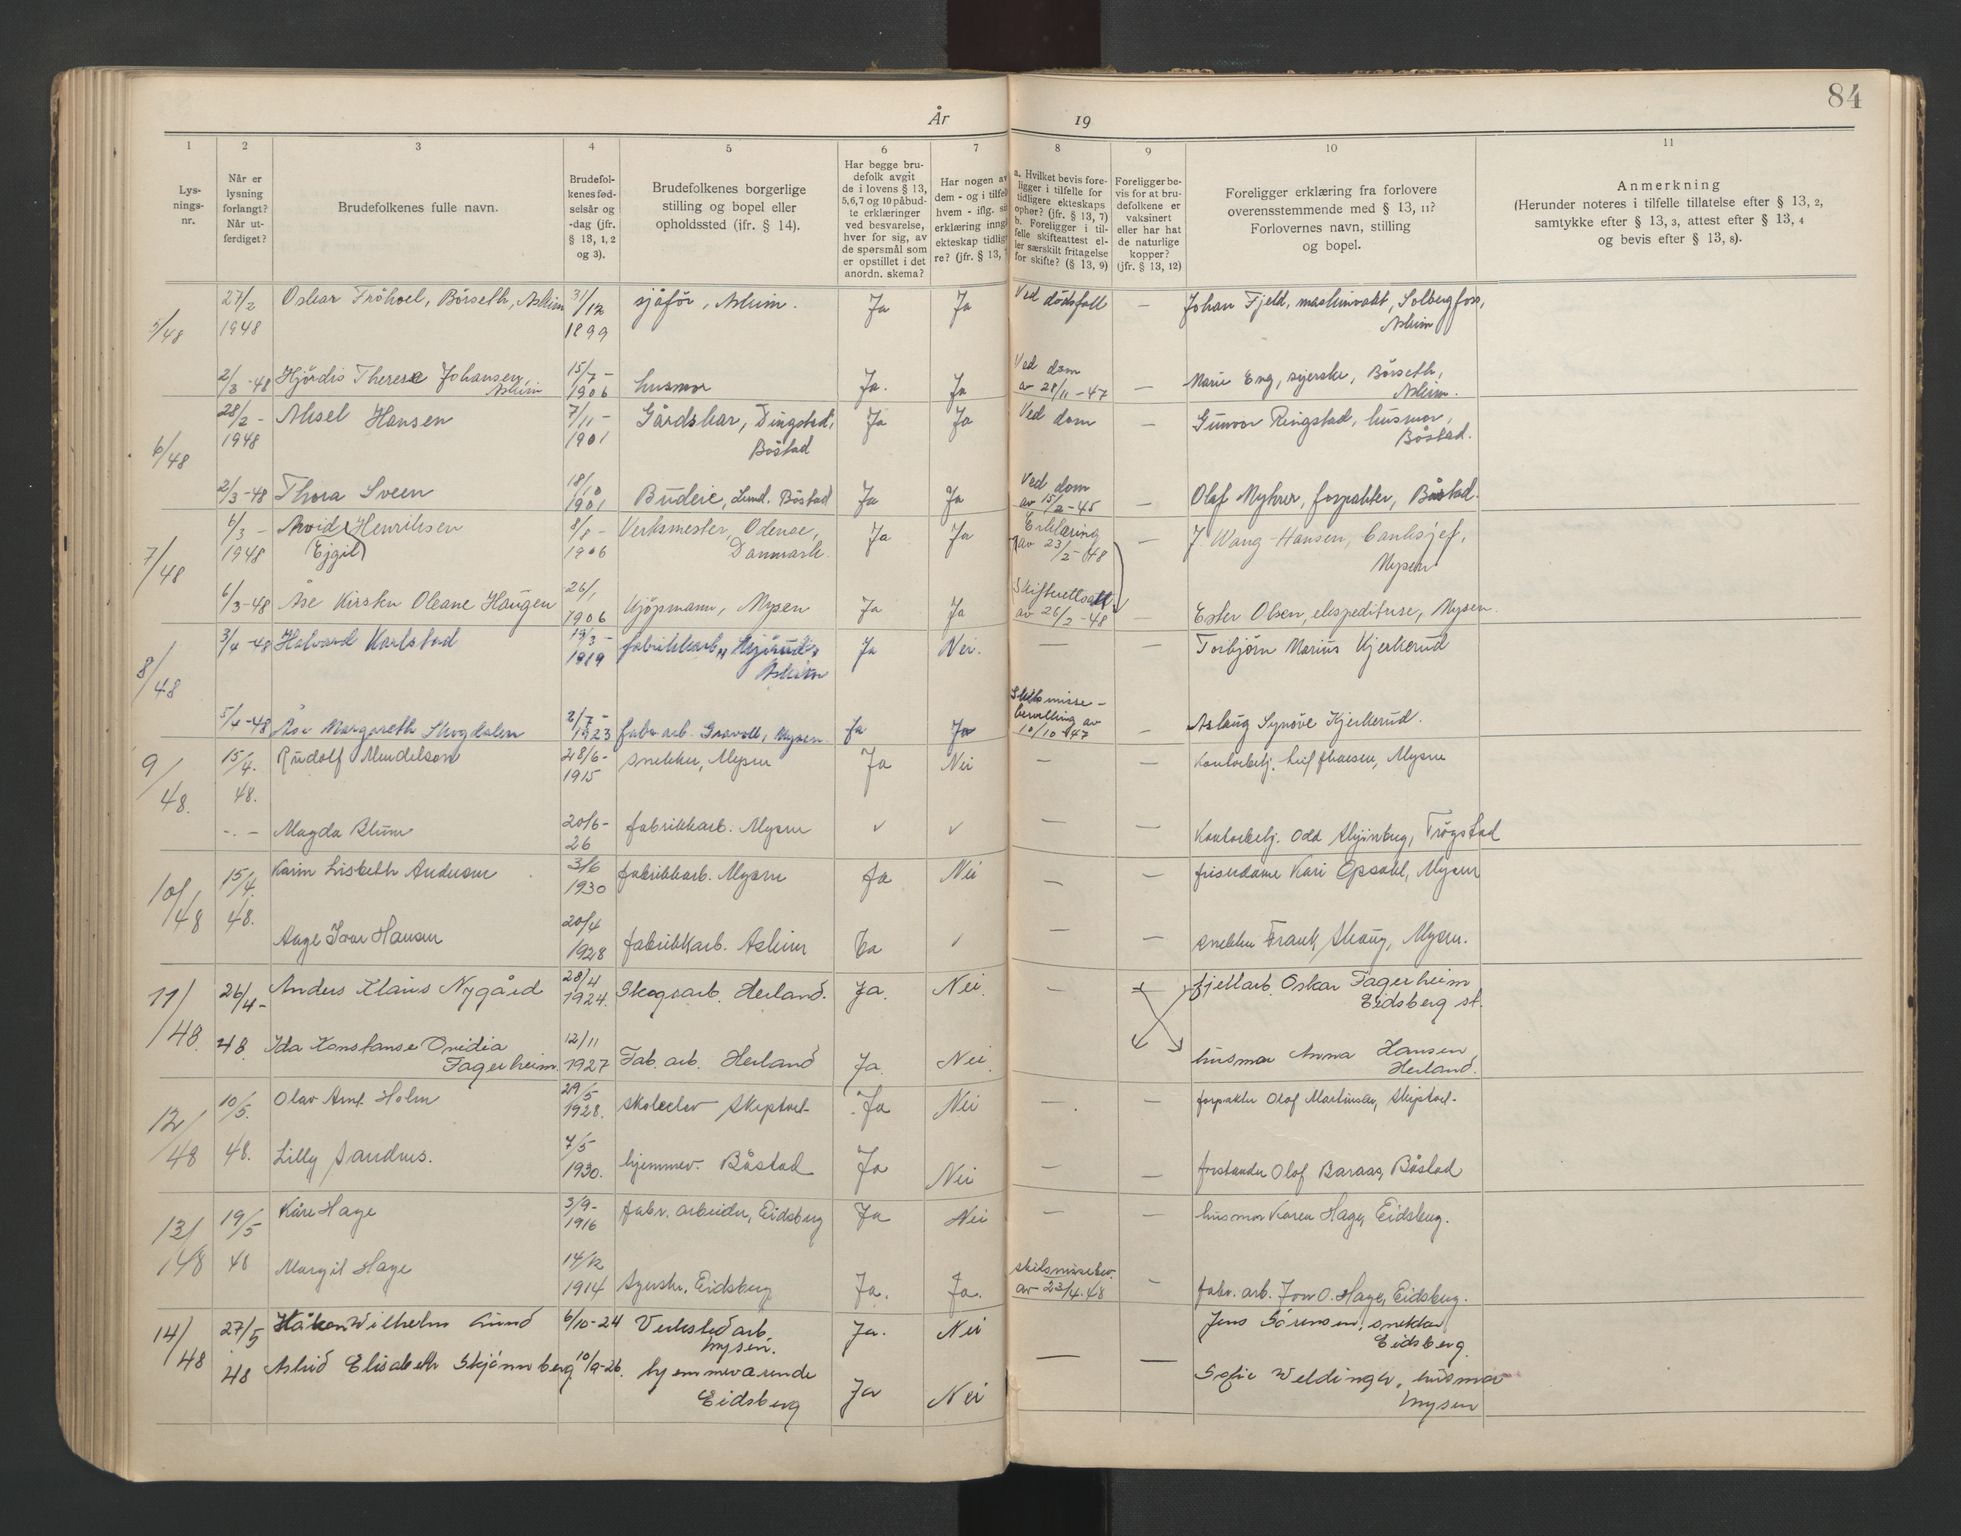 84
År 19
1 2 3 4 5 6 7 8 9 10 11
Lys-
nings-
nr.
Når er
lysning
forlangt?
Når ut-
ferdiget?
Brudefolkenes fulle navn.
Brudefol-
kenes fød-
selsår og
-dag (jfr.
§ 13, 1, 2
og 3).
Brudefolkenes borgerlige
stilling og bopel eller
opholdssted (ifr. § 14).
Har begge bru-
defolk avgit
de i lovens § 13,
5,6,7 og 10 påbud-
te erklæringer
ved besvarelse,
hver for sig, av
de spørsmål som
er opstillet i det
anordn. skema?
Har nogen av
dem - og i tilfel
hvem - iflg. si
erklæring inng
ekteskap tidlig
re? (jfr. § 13,
a. Hvilket bevis fore-
ligger i tilfelle for
tidligere ekteskaps
ophør? (jfr. § 13, 7)
b. Foreligger i til-
felle skifteattest el-
ler særskilt fritagelse
for skifte? (§ 13, 9)
Foreligger be-
vis for at bru-
defolkene er
vaksinert
eller har hat
de naturlige
kopper?
(jfr. § 13, 12)
Foreligger erklæring fra forlovere
overensstemmende med § 13, 11?
Forlovernes navn, stilling
og bopel.
Anmerkning
(Herunder noteres i tilfelle tillatelse efter § 13, 2,
samtykke efter § 13, 3, attest efter § 13, 4
og bevis efter § 13, 8).
5/48 27/2 1948 Oskar Fröhoel, Börseth, Askim 31/12 1899 sjåfør, Askim. Ja Ja Ved dödsfall — Johan Fjeld, maskinvakt, Solbergfoss,
Askim
2/3-48 Hjørdis Therese Johansen, Askim 15/7 - 1906 husmor Ja. Ja Ved dom av 28/11-47 — Marie Eng, syerske, Börseth,
Askim.
6/48 28/2 - 1948 Aksel Hansen 7/11 - 1901 Gårdskar, Dingstad, Båstad Ja Ja Ved dom — Gunvor Ringstad, husmor,
Båstad.
2/3-48 Thora Sveen 18/10 1901 Budeie, Lund. Båstad Ja Ja Ved dom av 15/2-45 — Olaf Myhrer, forpakter, Båstad.
7/48 6/3 - 1948 Arvid Henriksen (Ejgil) 8/8 - 1906 Verksmester, Odense, Danmark. Ja Ja Erklæring av 23/2-48 — J. Wang-Hansen, banksjef,
Mysen
6/3-48 Åse Kirsten Oleane Haugen 26/1 1906 Kjöpmann, Mysen Ja Ja Skifterettsatt av 26/2-48 — Ester Olsen, ekspeditrise, Mysen.
8/48 3/4-48 Halvard Karlstad 19/3 - 1919 fabrikkarb., Askim Ja Nei. — Torbjörn Marius Kjerkerud
5/4-48 Åse Margareth Skogdalen 2/7 - 1923 fabr. arb. Mysen Ja Ja Skilsmisse-
bevilling av
10/10-47 — Aslaug Synöve Kjerkerud.
9/48. 15/4. 48. Rudolf Mendelson 28/6 - 1915 snekker, Mysen Ja Nei — — Kontorbetj. Leif Mysen
-.- Magda Blum 20/6 - 26 fabrikkarb. Mysen ✓ ✓ — — Kontorbetj. Odd Trøgstad
10/48 15/4. 48. Karin Lisbeth Andersen 3/6 1930 fabrikkarb. Mysen Ja Nei — — frisérdame Kari Opsahl, Mysen
Aage Ivar Hansen 20/4 1928 fabrikkarb. Askim Ja ✓ — — snekker Frank Skaug, Mysen.
11/48. 26/4 - 48. Anders Klaus Nygård 28/4 1924. Skogsarb. Herland. Ja. Nei. — — fjellarb. Oskar Fagerheim
Eidsberg st.
Ida Konstanse Ovidia
Fagerheim. 12/11 1927 Fab. arb. Herland Ja. Nei. husmor Anna Hansen
Herland.
12/48 10/5. 48. Olav Arnt Holm 29/5 1928. skoleelev Skiptvet Ja Nei — — forpakter Olaf Martinsen, Skiptvet
Lilly Sandnes. 7/5 1930. hjemmev. Båstad Ja Nei — — forstander Olof Baraas, Båstad
13/48 19/5 48 Kåre Hage 3/9 - 1916 fabr. arbeider, Eidsberg Ja Nei — — husmor Karen Hage, Eidsberg.
Margit Hage 14/12 1914 Syerske, Eidsberg Ja. Ja. skilsmissebev.
av 23/4.48 — fabr. arb. Jon O. Hage, Eidsberg.
14/48 27/5 48 Håkon Wilhelm Lund 6/10-24 Verkstedarb. Mysen. Ja. Nei Jens Sörensen, snekker
Eidsberg.
Astrid Elisabeth Skjönnberg 10/9-26. hjemmeværende
Eidsberg Ja Nei — — Sofie Weldingh, husmor
Mysen